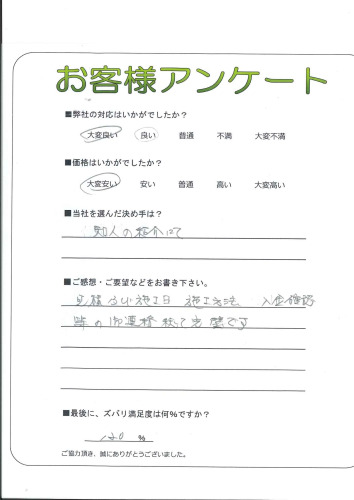 お客様アンケート
■弊社の対応はいかがでしたか?
大変良い 良い 普通 不満 大変不満
■価格はいかがでしたか?
大変安い 安い 普通 高い 大変高い
■当社を選んだ決め手は?
知人の紹介にて
■ご感想・ご要望などをお書き下さい。
見積 施工日 施工方法 入金確認
等の御連絡 全て完璧です
■最後に、ズバリ満足度は何%ですか?
120 %
ご協力頂き、誠にありがとうございました。